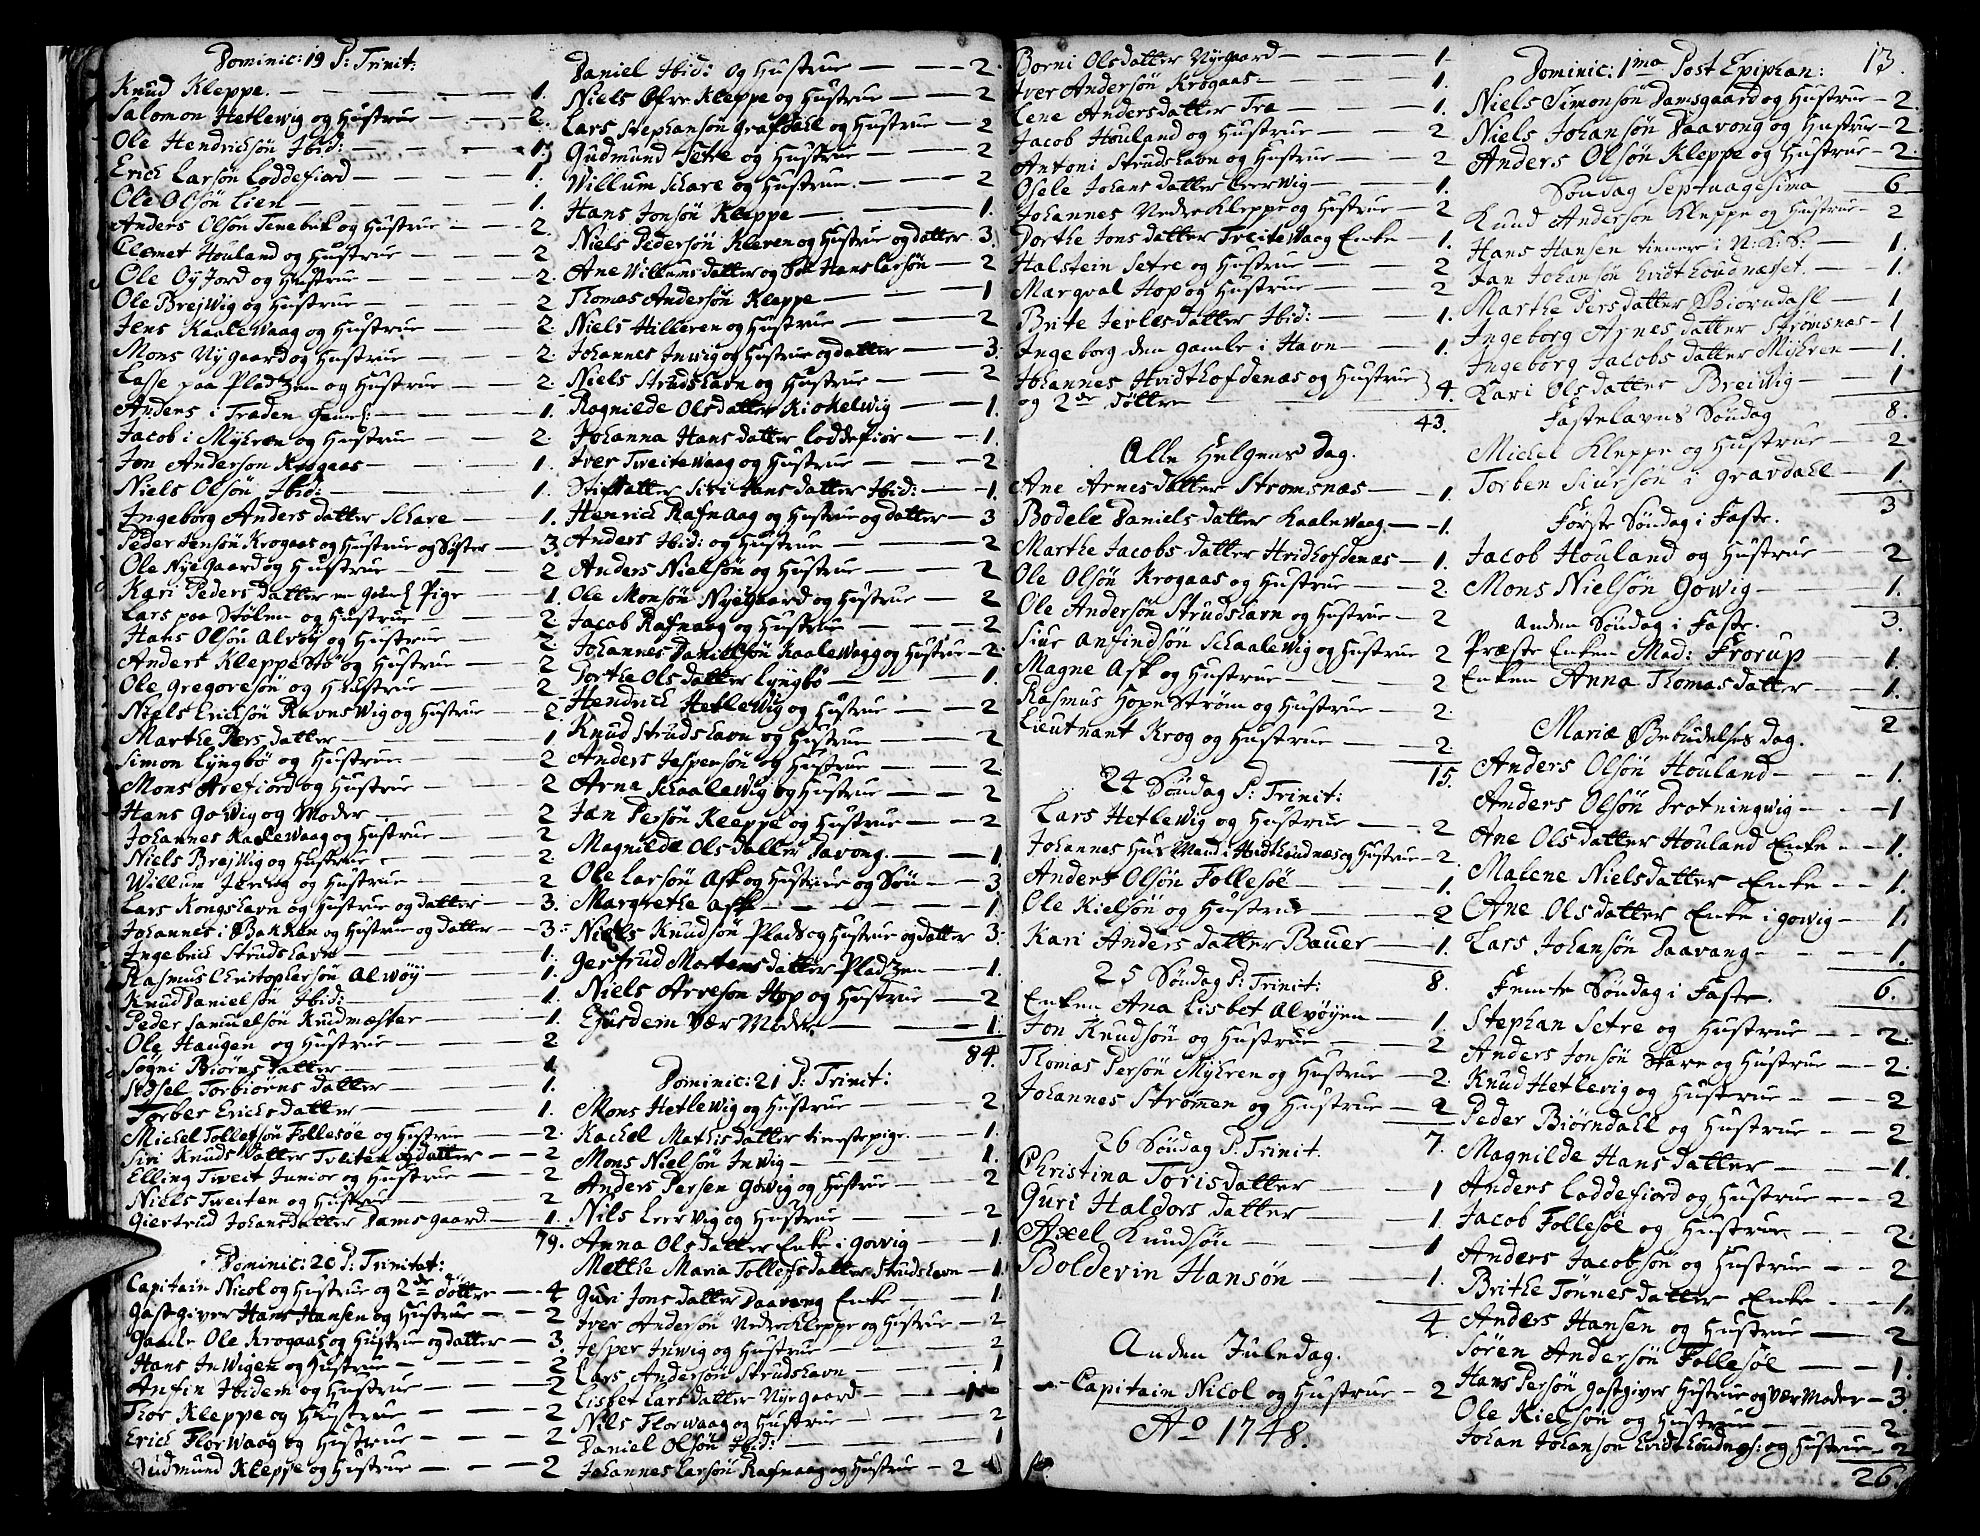 Dominic: 19 P: Trinit:
Knud Kleppe. — 1.
Salomon Hetlewig og Hustrue — 2.
Ole Hendrichsön Ibid: — 1.
Erich Larsön Loddefiord — 1.
Ole Olsön Lien — 1.
Anders Olsön Tenebek og Hustrue — 2.
Clemet Houland og Hustrue — 2
Ole Öyjord og Hustrue — 2.
Ole Brejwig og Hustrue — 2
Jens Kaalewaag og Hustrue — 2.
Mons Nygaard og Hustrue — 2.
Lasse paa Pladtzen og Hustrue — 2.
Anders i Traden — 1.
Jacob i Myhren og Hustrue — 2.
Jon Anderson Krogaas — 1.
Niels Olsön Ibid: — 1.
Ingeborg Anders datter Schare — 1.
Peder Jensön Krogaas og Hustrue og Söster — 3.
Ole Nyegaard og Hustrue — 2
Kari Peders datter Pige — 1.
Lars paa Stölen og Hustrue — 2
Hans Olsön Alvöy og Hustrue — 2.
Anders Kleppestö og Hustrue — 2
Ole Gregoresön og Hustrue — 2
Niels Erichsön Ravnswig og Hustrue — 2.
Marthe Pers datter — 1
Simon Lyngbö og Hustrue — 2
Mons Arefiord og Hustrue — 2
Hans Gowig og Moder — 2
Johannes Kaalewaag og Hustrue — 2
Niels Brejwig og Hustrue — 2.
Willum og Hustrue — 2
Lars Kongshavn og Hustrue og datter — 3.
Johannes i Bakken og Hustrue og datter — 3.
Ingebrict Strudshavn — 1.
Rasmus Christophersön Alwöy — 1.
Knud Danielsön Ibid: — 1.
Peder Samuelsön Krudmester — 1.
Ole Haugen og Hustrue — 2
Sögni Biörns datter — 1.
Sidsel Torbiörns datter — 1.
Torber Erichs datter — 1.
Michel Tollefsön Follesöe og Hustrue — 2.
Siri Knuds datter Tveiten og datter — 2
Elling Tweit Junior og Hustrue — 2
Niels Tweiten og Hustrue — 2
Giertrud Johansdatter Damsgaard — 1.
79.
Dominic: 20 P: Trinitat:
Capitain Nicol og Hustrue og 2de döttre — 4
Gastgiver Hans Hansen og Hustrue — 2
Gamle Ole Krogaas og Hustrue og datter — 3.
Hans Inwigen og Hustrue — 2
Anfin Ibidem og Hustrue — 2
Thor Kleppe og Hustrue — 2
Erich Florwaag og Hustrue — 2
Gudmund Kleppe og Hustrue — 2
Daniel Ibid: og Hustrue — 2.
Niels Öfre Kleppe og Hustrue — 2
Lars Stephansön Grafdahl og Hustrue — 2
Gudmund Setre og Hustrue — 2
Willum Schare og Hustrue — 2
Hans Jonsön Kleppe — 1.
Niels Pedersön Kleven og Hustrue og datter — 3.
Ane Willumsdatter og Sön Hans Larsön — 2
Thomas Andersön Kleppe — 1
Niels Hilleren og Hustrue — 2
Johannes Inwig og Hustrue og datter — 3.
Niels Strudshavn og Hustrue — 2
Rognilde Olsdatter Kiokelwig — 1.
Johanna Hans datter Loddefior — 1.
Iver Tweitewaag og Hustrue — 2
Stifdatter Siri Hansdatter Ibid: — 1.
Henrich Rafnaag og Hustrue og datter — 3
Anders Ibid: og Hustrue — 2
Anders Nielsön og Hustrue — 2
Ole Monsön Nyegaard og Hustrue — 2
Jacob Rafnaag og Hustrue — 2
Johannes Danielsön Kaalewaag og Hustrue — 2.
Dorthe Ols datter Lyngbö — 1.
Hendrich Hetlewig og Hustrue — 2
Knud Strudshavn og Hustrue — 2
Anders Jespersön og Hustrue — 2.
Arne Schaalewig og Hustrue — 2
Jan Persön Kleppe og Hustrue — 2
Magnilde Ols datter Davong — 1
Ole Larsön Ask og Hustrue og Sön — 3
Margrethe Ask — 1.
Niels Knudsön Plads og Hustrue og datter — 3.
Gertrud Mortens datter Pladtzen — 1.
Niels Arneson Hop og Hustrue — 2
Ejusdem Vær Moder — 1.
84.
Dominic: 21 P: Trinit:
Mons Hetlewig og Hustrue — 2
Rachel Mathis datter tienstepige — 1.
Mons Nielsön Inwig — 1.
Anders Persen Gowig og Hustrue — 2
Nils Leerwig og Hustrue — 2
Anna Olsdatter Enke i Gowig — 1
Mette Maria Tollefsdatter Strudshavn — 1.
Guri Jonsdatter Daavang Enke — 1
Iver Andersön Nedre Kleppe og Hustrue — 2
Jesper Inwig og Hustrue — 2
Lars Andersön Strudshavn — 1
Lisbet Lars datter Nyegaard — 1
Nils Florwaag og Hustrue — 2
Daniel Olsön Ibid: — 1
Johannes Larsön Rafnaag og Hustrue — 2
Borni Olsdatter Nyegaard — 1.
Iver Andersön Krogaas — 1.
Lene Andersdatter Tra — 1.
Jacob Houland og Hustrue — 2
Antoni Strudshavn og Hustrue — 2
Osele Johans datter Leerwig — 1.
Johannes Nedre Kleppe og Hustrue — 2
Dorthe Jons datter Tveitewaag Enke — 1.
Halstein Setre og Hustrue — 2
Marqval Hop og Hustrue — 2
Brite Jerles datter Ibid: — 1.
Ingeborg den gamle i Havn — 1.
Johannes Hvidthofdenæs og Hustrue
og 2de Döttre — 4.
43.
Alle Helgens Dag.
Ane Arnesdatter Strömsnæs — 1.
Bodele Daniels datter Kaalewaag — 1.
Marthe Jacobs datter Hvidhofdenæs — 1.
Ole Olsön Krogaas og Hustrue — 2.
Ole Andersön Strudshavn og Hustrue — 2
Siur Anfindsön Schaalewig og Hustrue — 2
Magne Ask og Hustrue — 2
Rasmus Hope Ström og Hustrue — 2.
Lieutnant Krog og Hustrue — 2.
15.
24 Söndag P: Trinit:
Lars Hetlewig og Hustrue — 2
Johannes Huusmand i Hvidthoudnæs og Hustrue — 2.
Anders Olsön Follesöe — 1.
Ole Nielsön og Hustrue — 2
Kari Anders datter Bauer — 1.
8.
25 Söndag P: Trinit:
Enken Ana Lisbet Alvöyen — 1.
Jon Knudsön og Hustrue — 2
Thomas Persön Myhren og Hustrue — 2.
Johannes Strömen og Hustrue — 2
7.
26 Söndag P: Trinit.
Christina Torisdatter — 1
Guri Haldors datter — 1.
Axel Knudsön — 1
Boldevin Hansön — 1.
4.
Anden Juledag.
Capitain Nicol og Hustrue — 2
Ao 1748.
13.
Dominic: 1ma Post Epiphan:
Niels Simonsön Damsgaard og Hustrue — 2.
Niels Johansön Daavong og Hustrue — 2.
Anders Olsön Kleppe og Hustrue — 2.
6.
Söndag Septuagesima
Knud Andersön Kleppe og Hustrue — 2
Hans Hansen tienner i N: K: S: — 1.
Jan Johansön Hvidthoudnæsset — 1.
Marthe Persdatter Biorndahl — 1
Ingeborg Arnes datter Strömsnæs — 1
Ingeborg Jacobs datter Myhren — 1.
Kari Olsdatter Breiwig — 1
8.
Fastelavns Söndag
Michel Kleppe og Hustrue — 2
Torben Siursön i Gravdahl — 1.
3
Förste Söndag i Faste.
Jacob Houland og Hustrue — 2
Mons Nielsön Gowig — 1.
3.
Anden Söndag i Faste.
Præste Enken Mad: Frorup — 1.
Enken Anna Thomas datter — 1.
2
Mariæ Bebudelses dag.
Anders Olsön Houland — 1.
Anders Olsön Drotningwig — 1
Ane Olsdatter Houland Enke — 1.
Malene Nielsdatter Enke — 1.
Ane Olsdatter Enke i Gowig — 1.
Lars Johansön Daavang — 1.
6.
Femte Söndag i Faste.
Stephan Setre og Hustrue — 2.
Anders Jonsön Skare og Hustrue — 2.
Knud Hetlevig og Hustrue — 2
Peder Biörndahl og Hustrue — 2
Magnilde Hansdatter — 1.
Anders Loddefiord og Hustrue — 2
Jacob Follesöe og Hustrue — 2.
Anders Jacobsön og Hustrue — 2
Brithe Tönnesdatter Enke — 1.
Anders Hansen og Hustrue — 2
Sören Andersön Follesöe — 1.
Hans Persön Gastgiver Hustrue og Vær Moder — 3.
Ole Nielsön og Hustrue — 2
Johan Johanson Hvidthoudnæs: og Hustrue — 2
26.